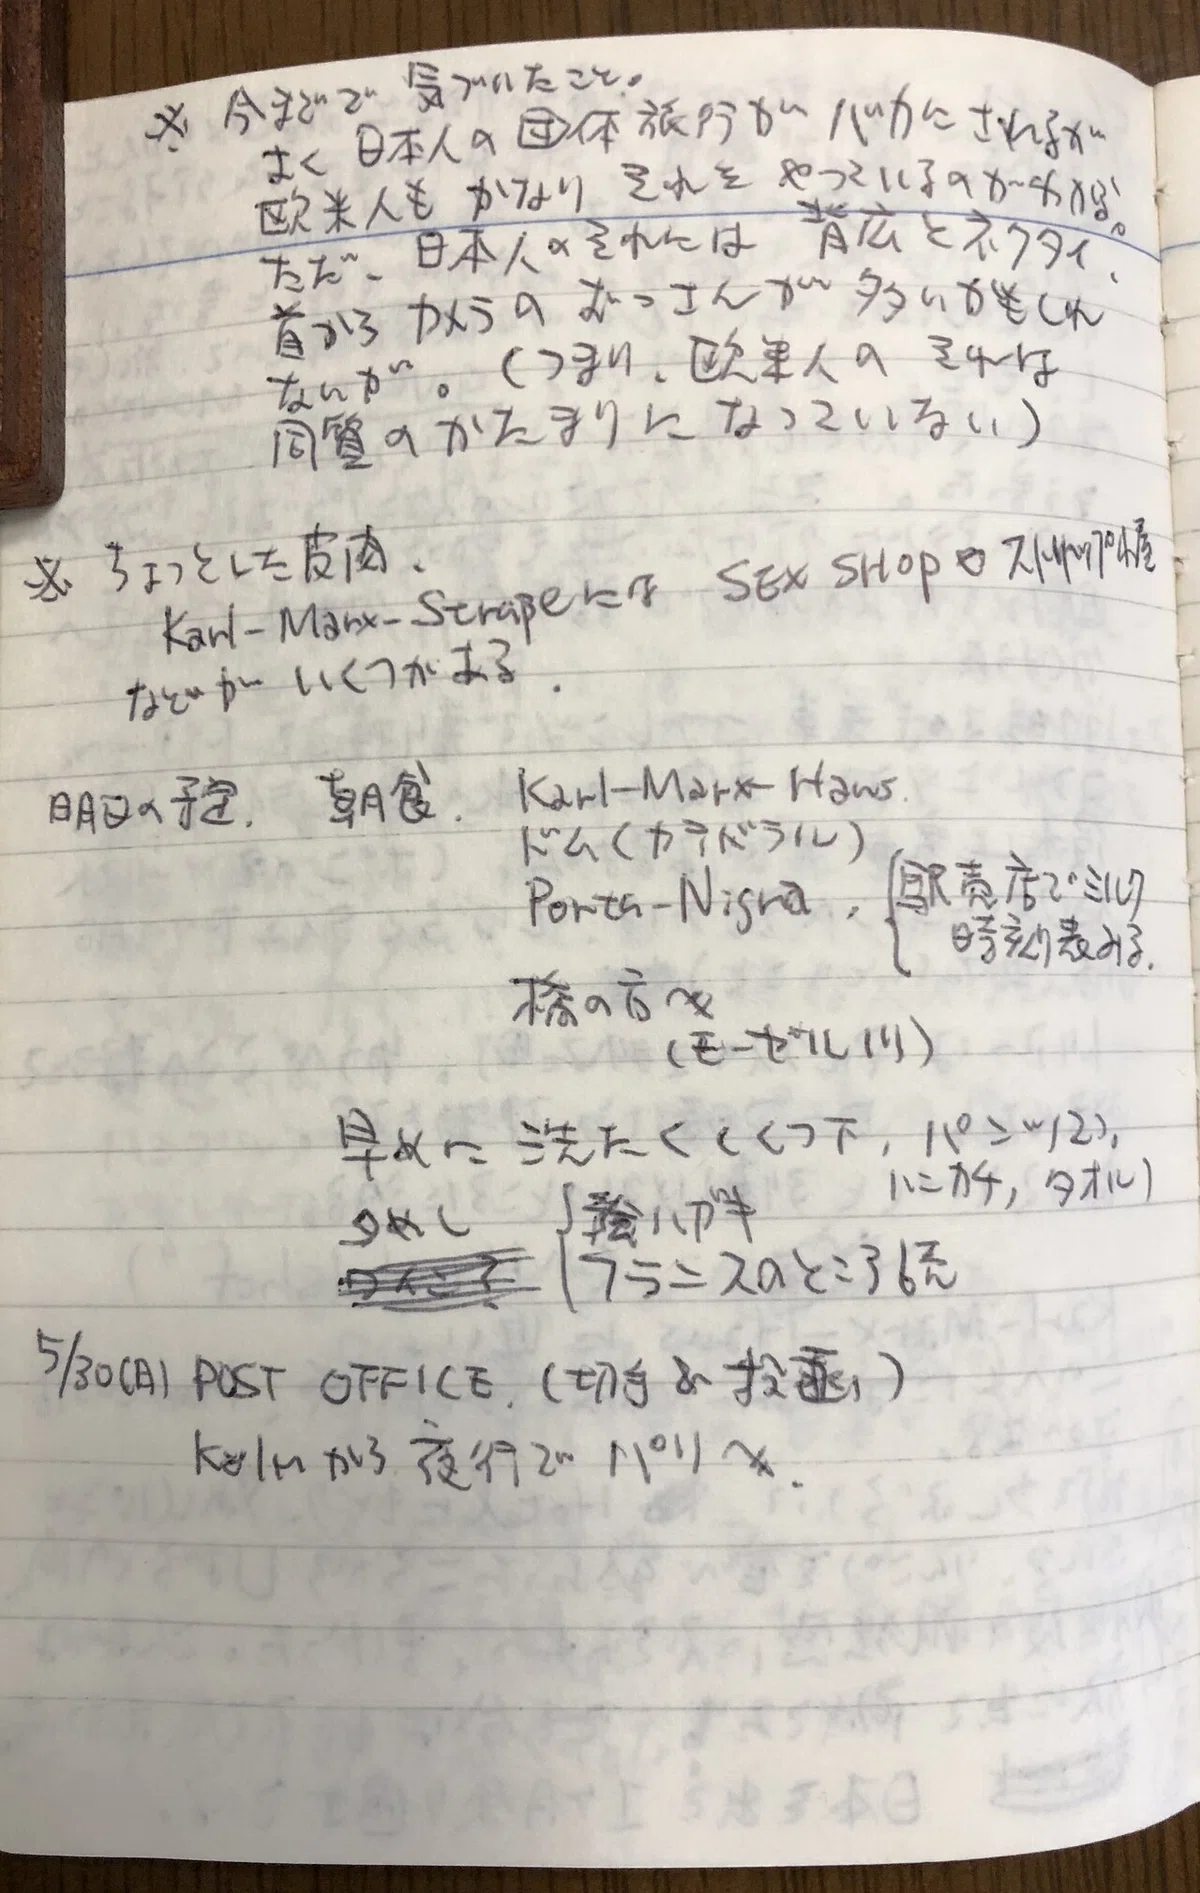 ※ 今までで 気づいたこと。
よく 日本人の 団体旅行が バカに されるが
欧米人も かなり それを やっているのがわかる。
ただ、日本人のそれには 背広とネクタイ、
首から カメラの おっさんが 多いかもしれ
ないが。(つまり、欧米人の それは
同質の かたまりに なっていない)
※ ちょっとした皮肉.
Karl-Marx-Straßeには SEX SHOPや ストリップ小屋
などが いくつかある.
明日の予定. 朝食. Karl-Marx-Haus.
ドム(カテドラル)
Porta-Nigra. 駅売店でミルク
時刻表みる.
橋の方へ
(モーゼル川)
早めに 洗たく(くつ下, パンツ(2),
ハンカチ, タオル)
夕めし 絵ハガキ
フランスのところ読
5/30(月) POST OFFICE. (切手&投函)
Kölnから 夜行で パリへ.